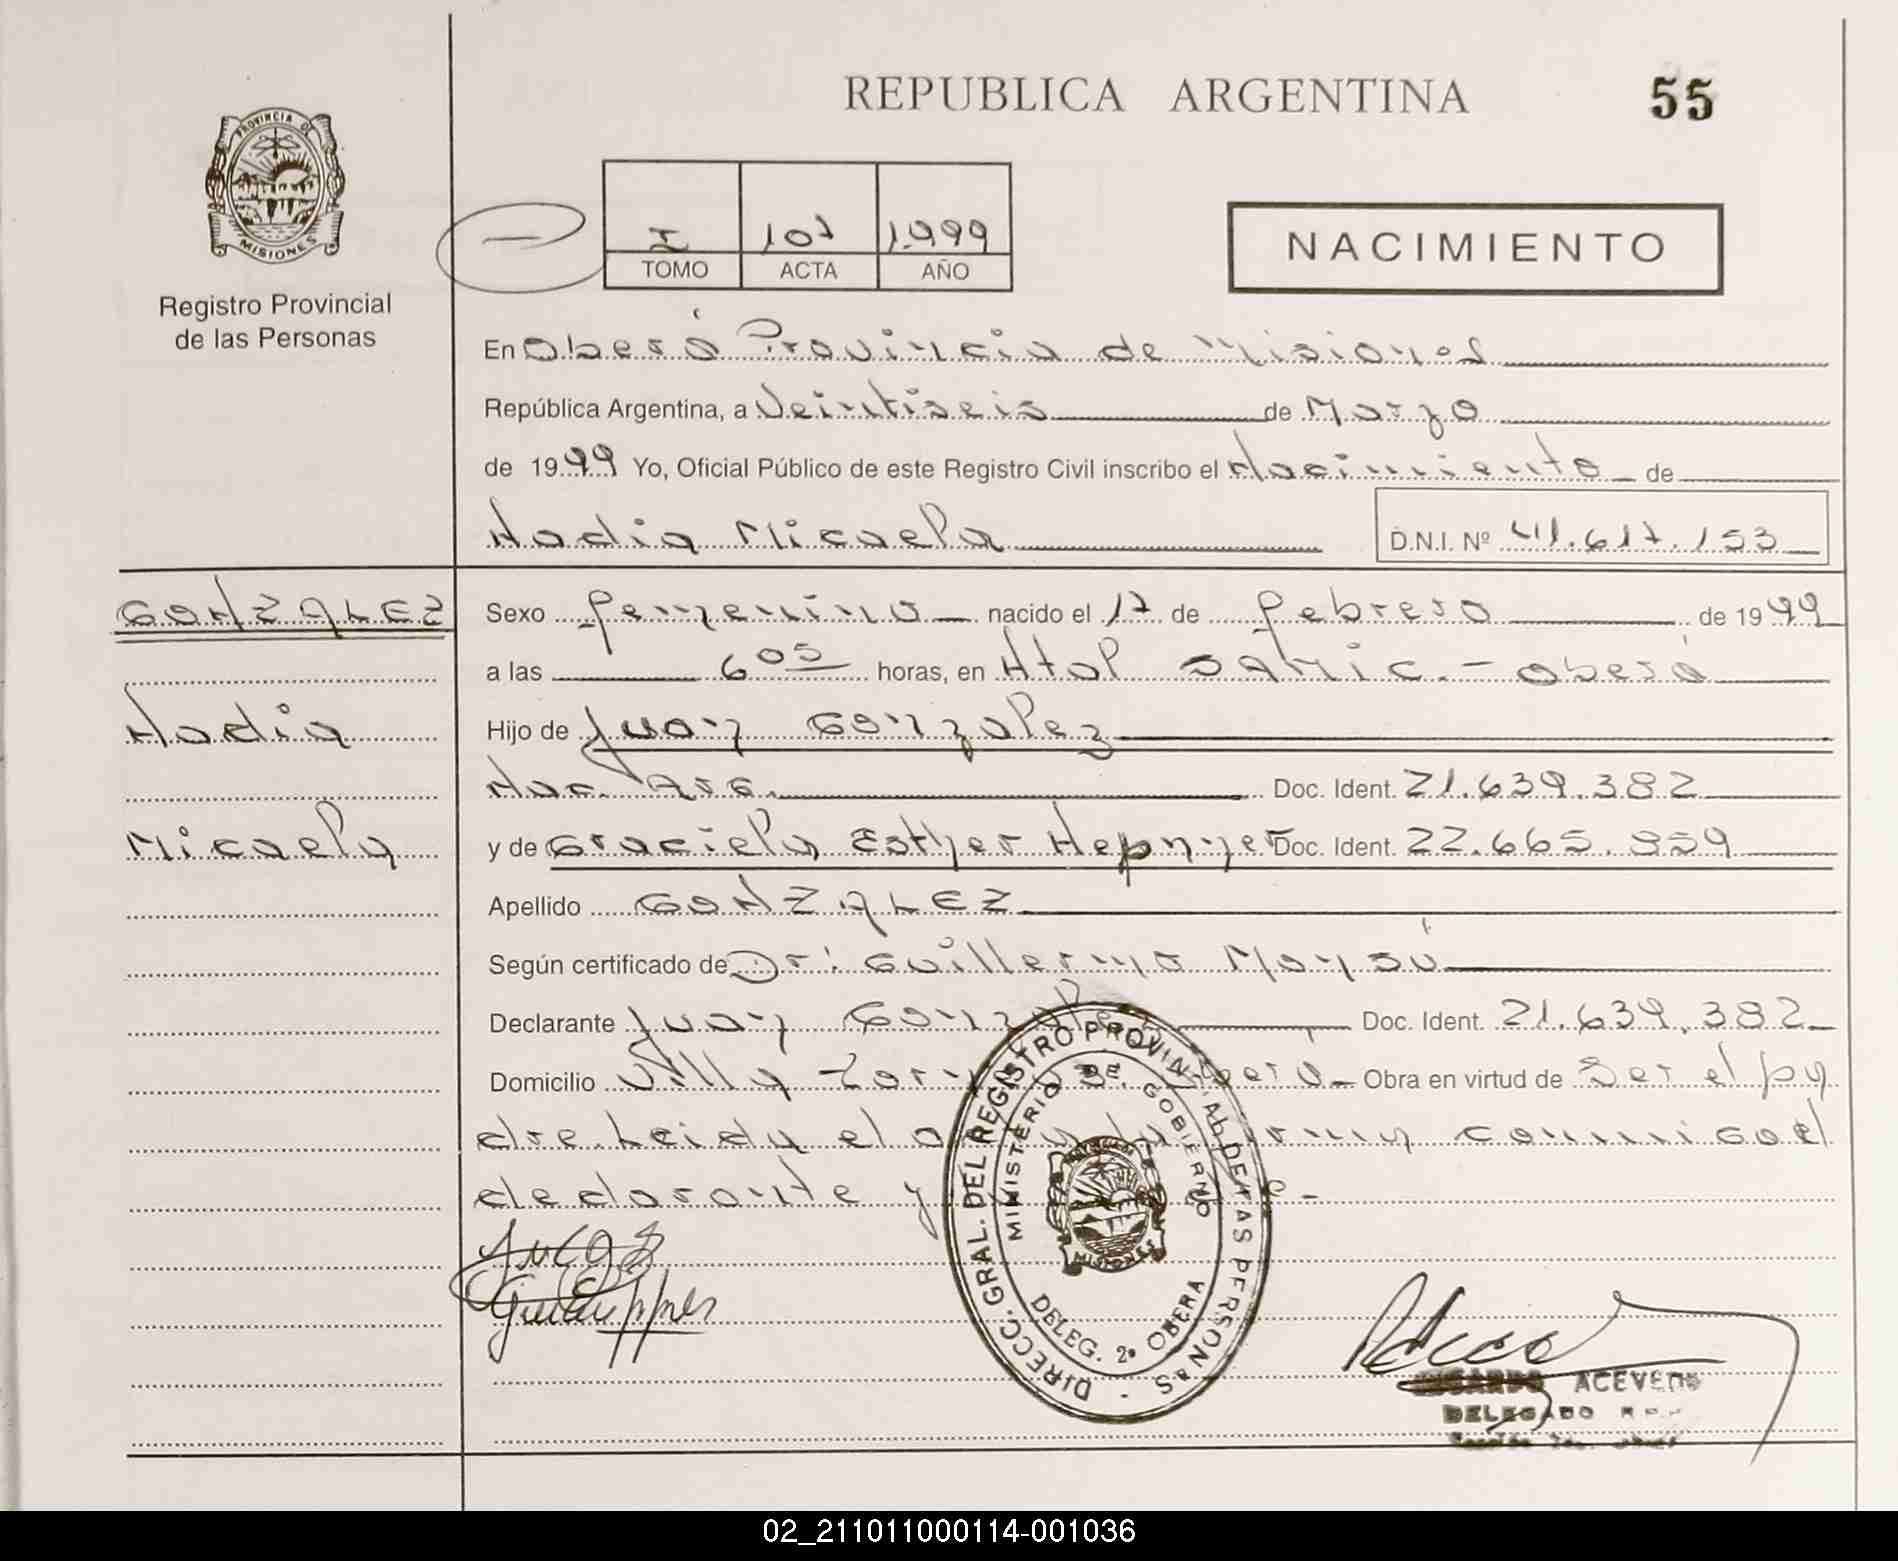 REPUBLICA ARGENTINA 55
PROVINCIA DE
MISIONES
Registro Provincial
de las Personas
I 107 1.999
TOMO ACTA AÑO
NACIMIENTO
En Oberá Provincia de Misiones
República Argentina, a Veintiseis de Marzo
de 1999 Yo, Oficial Público de este Registro Civil inscribo el Nacimiento de
Nadia Micaela D.N.I. Nº 41.617.153
GONZALEZ
Nadia
Micaela
Sexo femenino nacido el 17 de febrero de 1999
a las 6 05 horas, en Htol SAMIC.- Oberá
Hijo de Juan Gonzalez
Nac. Arg. Doc. Ident. 21.639.382
y de Graciela Esther Heppner Doc. Ident. 22.665.859
Apellido GONZALEZ
Según certificado de Dr: Guillermo
Declarante Juan Gonzalez Doc. Ident. 21.639.382
Domicilio Villa Oberá Obra en virtud de Ser el pa
dre. Leida el acta la firma conmigo el
declarante y
DIRECC. GRAL. DEL REGISTRO PROVINCIAL DE LAS PERSONAS
MINISTERIO DE GOBIERNO
MISIONES
DELEG. 2ª OBERA
RICARDO ACEVEDO
DELEGADO R.P.P.
02_211011000114-001036